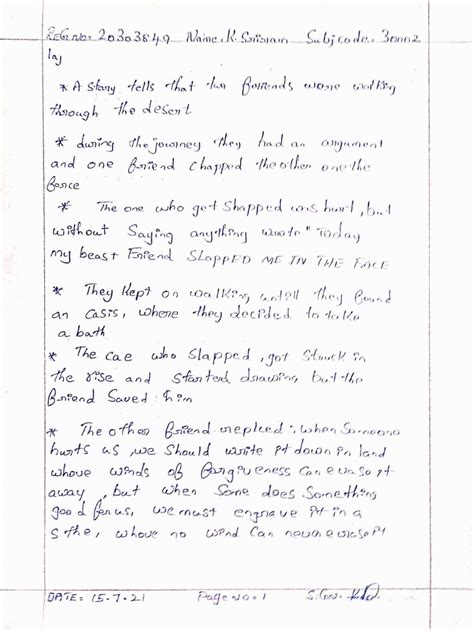 REG no: 20303849 Name: K. Sriram Subj code: 30002
1a)
* A Story tells that two friends were walking
through the desert
* during the journey they had an argument
and one friend chapped the other one the
force
* The one who got Shapped was hurt, but
without Saying anything wrote "Today
my beast Friend SLAPPED ME IN THE FACE
* They kept on walking untell they found
an oasis, where they decided to take
a bath
* The cae who slapped, got Struck in
the rise and started drawing but the
friend Saved him
* The other friend replced: when Someone
hurts us we should write it down in land
whove winds of forgiveness can evase it
away, but when Some does Something
good for us, we must engrave it in a
s the, whove no wind can never evase it
DATE: 15.7.21 Page no: 1 Sign.